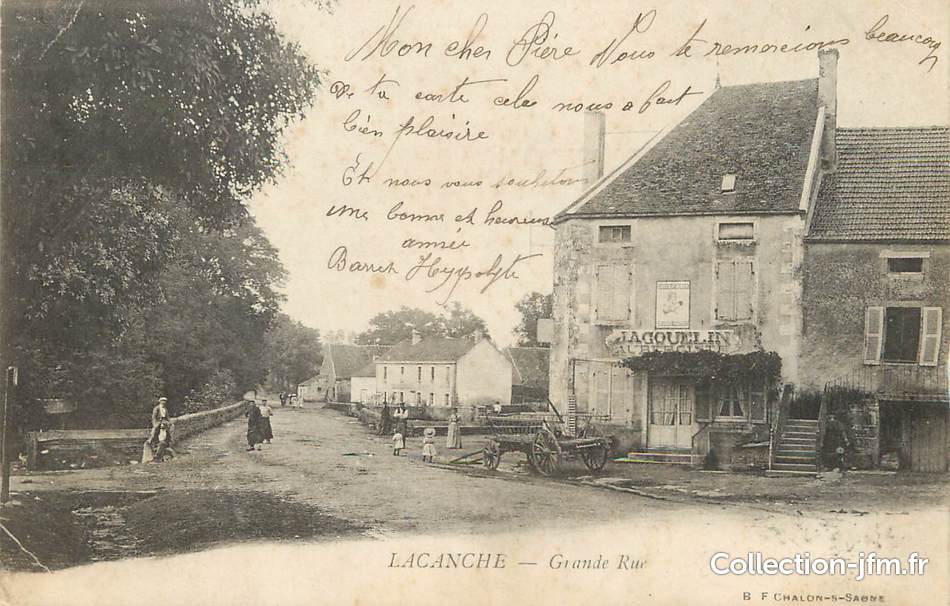 Mon cher Pière Nous te remercions beaucoup
de ta carte cela nous a fait
bien plaisire
Et nous vous souhétons
une bonne et heureuse
année
Barret Hyppolyte
JACQUELIN
AUBERGISTE
LACANCHE — Grande Rue
Collection-jfm.fr
B F CHALON-S-SAONE